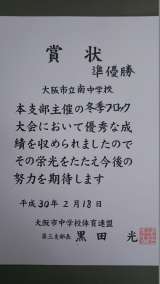 賞状
準優勝
大阪市立南中学校
本支部主催の冬季ブロック
大会において優秀な成
績を収められましたので
その栄光をたたえ今後の
努力を期待します
平成30年2月18日
大阪市中学校体育連盟
第三支部長 黒田 光